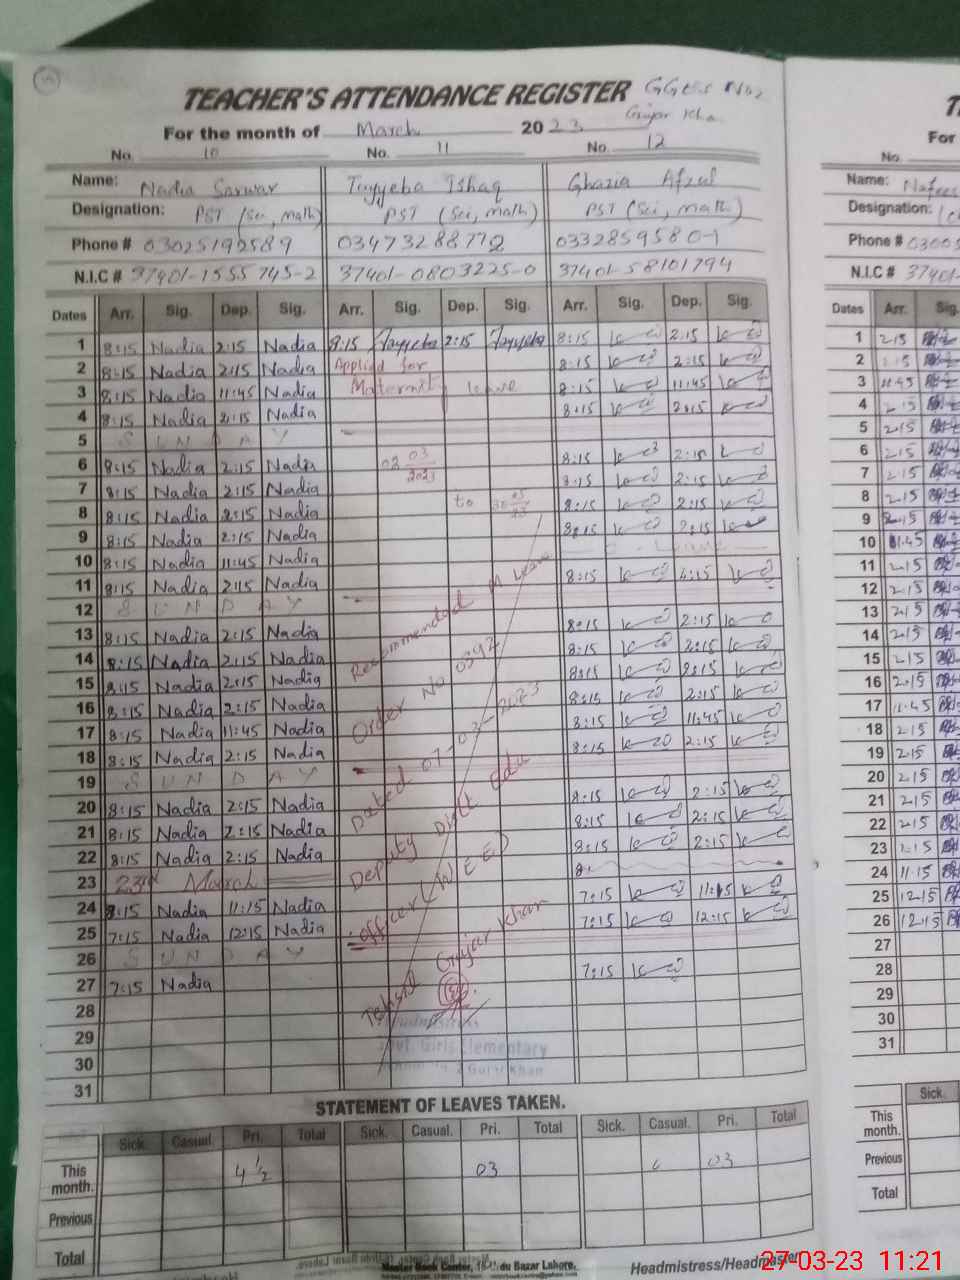 TEACHER'S ATTENDANCE REGISTER
Gujar Khan
For the month of March 2023
No. 10 No. 11 No. 12
Name: Nadia Sarwar Tayyeba Ishaq Ghazia Afzal
Designation: PST (Sci, math) PST (Sci, math) PST (Sci, math)
Phone # 03025192589 03473288772
N.I.C # 37401-1555745-2 37401-0803225-0 37401-58101794
Dates Arr. Sig. Dep. Sig. Arr. Sig. Dep. Sig. Arr. Sig. Dep. Sig.
1 8:15 Nadia 2:15 Nadia 8:15 Tayyeba 2:15 Tayyeba 8:15 2:15
2 8:15 Nadia 2:15 Nadia Applied for 8:15 2:15
3 8:15 Nadia 11:45 Nadia Maternity leave 8:15 11:45
4 8:15 Nadia 2:15 Nadia 8:15 2:15
5 SUNDAY
6 8:15 Nadia 2:15 Nadia 02 03 2023 8:15 2:15
7 8:15 Nadia 2:15 Nadia 8:15 2:15
8 8:15 Nadia 2:15 Nadia to 8:15 2:15
9 8:15 Nadia 2:15 Nadia 8:15 2:15
10 8:15 Nadia 11:45 Nadia Leave
11 8:15 Nadia 2:15 Nadia 8:15
12 SUNDAY
13 8:15 Nadia 2:15 Nadia 8:15 2:15
14 8:15 Nadia 2:15 Nadia 8:15 2:15
15 8:15 Nadia 2:15 Nadia 8:15 2:15
16 8:15 Nadia 2:15 Nadia 8:15 2:15
17 8:15 Nadia 11:45 Nadia 8:15 11:45
18 8:15 Nadia 2:15 Nadia 8:15 2:15
19 SUNDAY
20 8:15 Nadia 2:15 Nadia 8:15 2:15
21 8:15 Nadia 2:15 Nadia 8:15 2:15
22 8:15 Nadia 2:15 Nadia 8:15 2:15
23 23rd March 8:
24 8:15 Nadia 11:15 Nadia 7:15 11:15
25 7:15 Nadia 12:15 Nadia 7:15 12:15
26 SUNDAY
27 7:15 Nadia 7:15
28
29
30
31
Recommended M Leave
Order No 0392
Dated 07-03-2023
Deputy Distt Edu
officer (WEE)
Tehsil Gujar Khan
Headmistress
Govt. Girls Elementary
Gujar Khan
STATEMENT OF LEAVES TAKEN.
Sick. Casual. Pri. Total Sick. Casual. Pri. Total Sick. Casual. Pri. Total
This month. 4 1/2 03 03
Previous
Total
Master Book Center, Urdu Bazar Lahore.
Headmistress/Headmaster
For
No.
Name: Nafees
Designation:
Phone #
N.I.C #
Dates Arr. Sig.
1 2:15
2 2:15
3 11:45
4 2:15
5 2:15
6 2:15
7 2:15
8 2:15
9 2:15
10 11:45
11 2:15
12 2:15
13 2:15
14 2:15
15 2:15
16 2:15
17 11:45
18 2:15
19 2:15
20 2:15
21 2:15
22 2:15
23 2:15
24 11:15
25 12:15
26 12:15
27
28
29
30
31
Sick.
This month.
Previous
Total
27-03-23 11:21